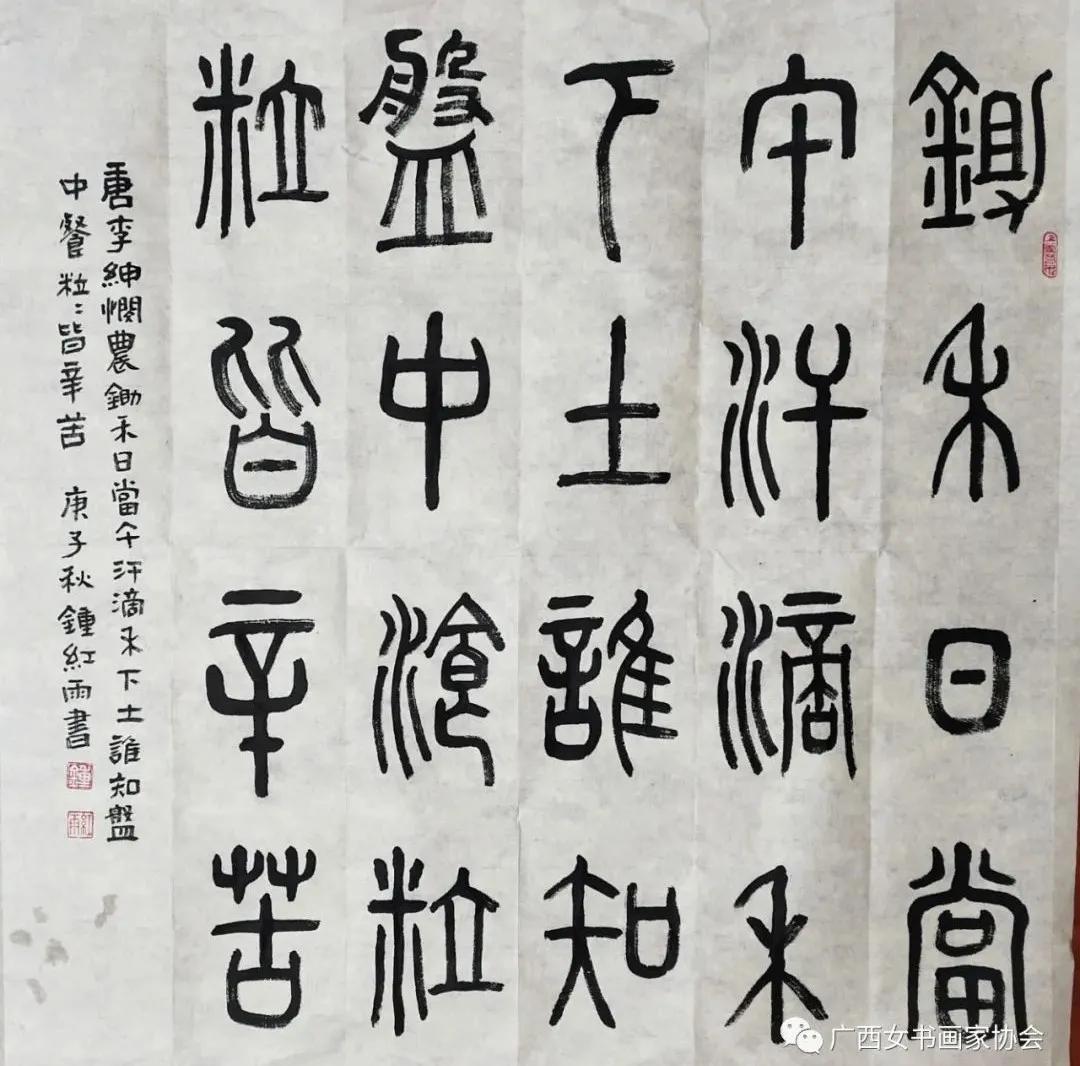 鋤禾日當
午汗滴禾
下土誰知
盤中湌粒
粒皆辛苦
唐李紳憫農鋤禾日當午汗滴禾下土誰知盤
中餐粒〻皆辛苦 庚子秋鍾紅雨書
鍾
紅雨
广西女书画家协会